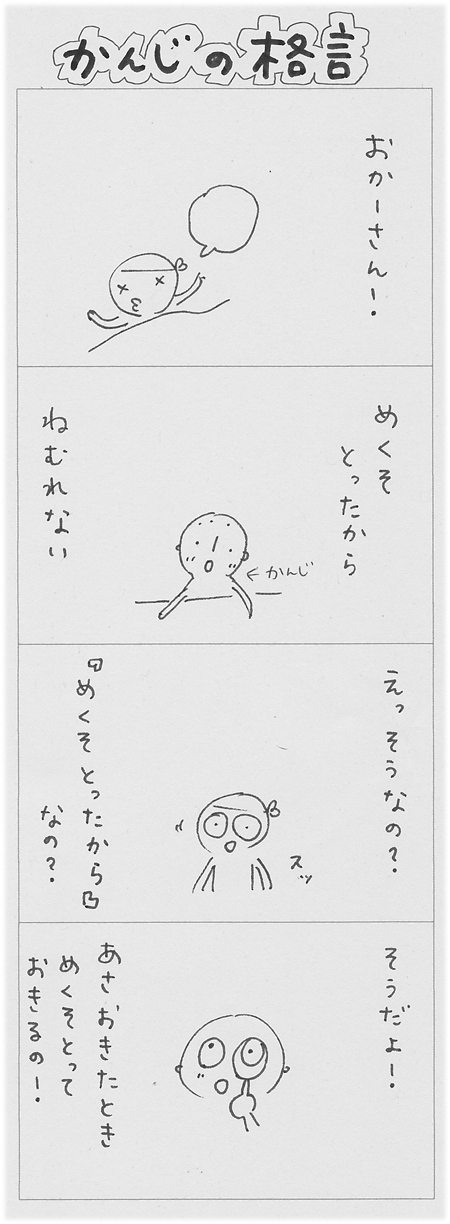 かんじの格言
おかーさん!
めくそ
とったから
ねむれない
←かんじ
えっそうなの?
『めくそとったから』
なの?
スッ
そうだよ!
あさおきたとき
めくそとって
おきるの!